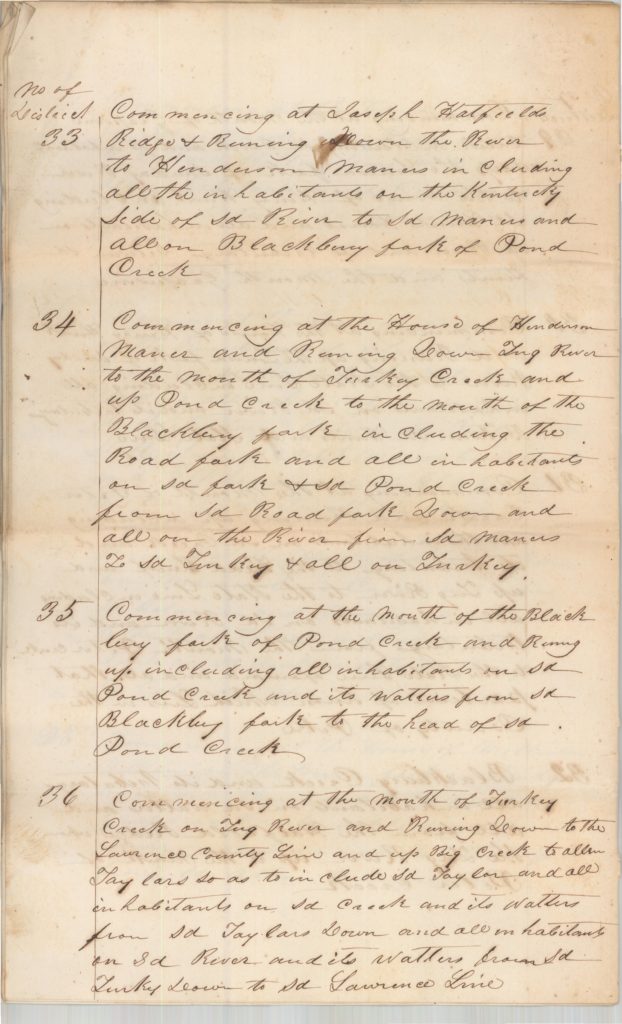 No of
District
33 Commencing at Joseph Hatfields
Ridge & Runing Down the River
to Henderson Maners in cluding
all the in habitants on the Kentucky
Side of sd River to sd Maners and
all on Blackbery fork of Pond
Creek
34 Commencing at the House of Henderson
Maner and Runing Down Tug River
to the mouth of Turkey Creek and
up Pond Creek to the mouth of the
Blackbury fork in cluding the
Road fork and all in habitants
on sd fork & sd Pond Creek
from sd Road fork Down and
all on the River from sd Maners
To sd Turkey & all on Turkey
35 Commencing at the mouth of the Black
bury fork of Pond Creek and Runing
up including all inhabitants on sd
Pond Creek and its watters from sd
Blackbery fork to the head of sd
Pond Creek
36 Commencing at the mouth of Turkey
Creek on Tug River and Runing Down to the
Lawrence County Line and up Big Creek to allen
Taylars so as to in clude sd Taylor and all
in habitants on sd Creek and its watters
from sd Taylars Down and all in habitants
on sd River and its watters from sd
Turky Down to sd Lawrence Line